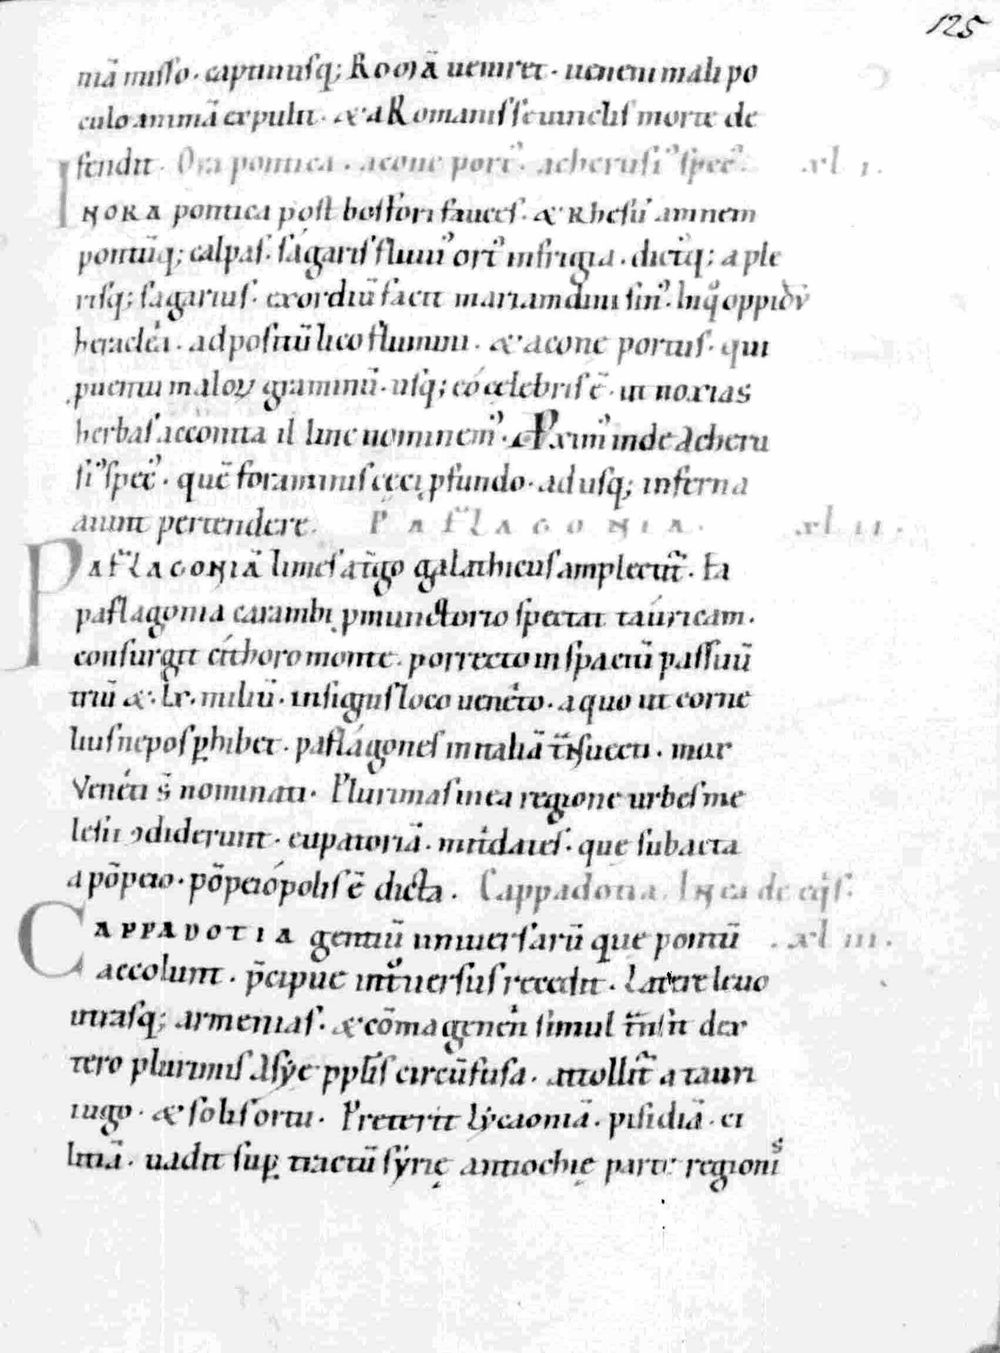 125
niā misso. captiuusq; Romā ueniret. ueneni mali po
culo animā expulit. & a Romanis se uinclis morte de
fendit. Ora pontica. acone port᾽. acherusi᾽ spec᾽. xl i.
INORA pontica post bosfori fauces. & Rhesū amnem
pontūq; calpas. ságaris fluui᾽ ort᾽ in frigia. dict᾽q; a ple
risq; sagarius. exordiū facit mariandini sin᾽. In q̊ oppidū
heracléa. adpositū lico flumini. & acone portus. qui
puentu maloꝝ graminū. usq; eó celebris ē. ut noxias
herbas acconita il linc nominem᾽. Pxim᾽ inde Acheru
si᾽ spec᾽. quē foraminis cęci ꝓfundo. ad usq; inferna
aiunt pertendere. PAFLAGONIA. xl ii.
PAFLAGONIĀ limes a t̄go galathicus amplectit᾽. Ea
paflagonia carambi ꝓmunctorio spectat táuricam.
consurgit cíthoro monte. porrecto in spaciū passuū
triū &. lx. miliū. insignis loco uenéto. a quo ut corne
lius nepos ꝑhibet. paflágones in italiā t̄nsuecti. mox
Venéti s̄ nominati. Plurimas in ea regione urbes me
lesii ɔdiderunt. eupatoriā. mitridates. que subacta
a pōpeio. pōpeiópolis ē dicta. Cappadotia. In ea de eq̄s.
CAPPADOTIA gentiū uniuersarū que pontū xl iii.
accolunt. p̄cipue int᾽uersus recedit. Latere leuo
utrasq; armenias. & cōmagenen simul t̄nsit dex
tero plurimis Asẏe pplis circūfusa. attollit᾽ a tauri
iugo. & solis ortu. Preterit Lẏcaoniā. pisidiā. ci
litiā. uadit suꝑ tractū sẏrię antiochię parte regionis